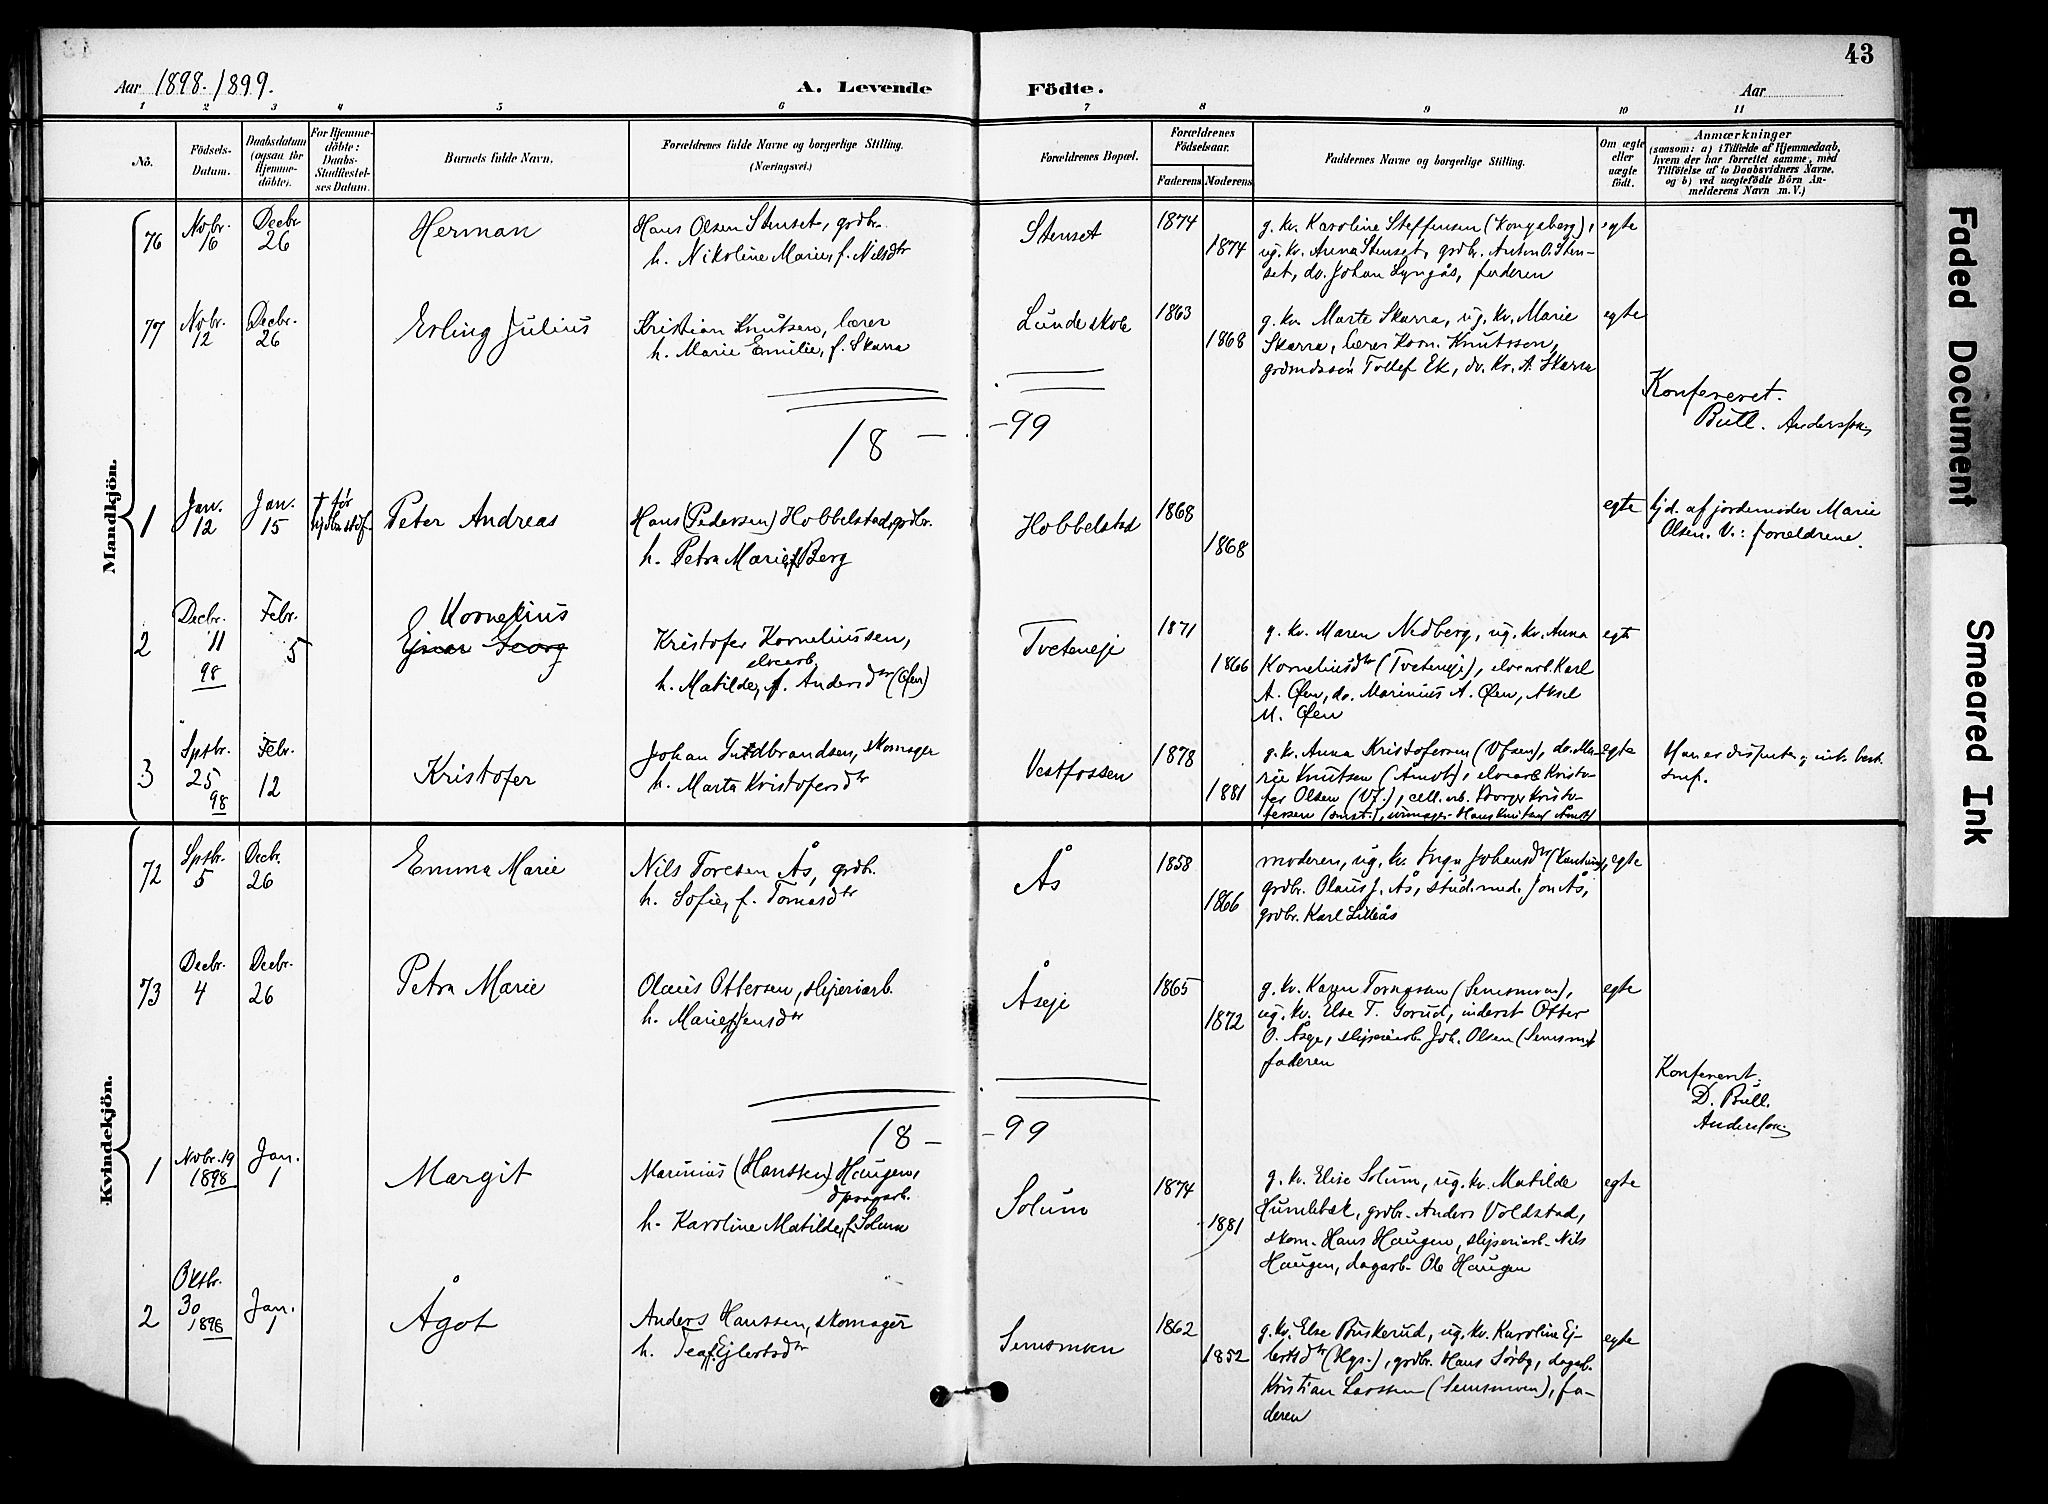 43
Aar 1898-1899.
A. Levende Födte.
Aar
1 2 3 4 5 6 7 8 9 10 11
No.
Födsels-Datum.
Daabsdatum (ogsaa for Hjemme-döbte).
For Hjemme-döbte: Daabs-Stadfæstel-ses Datum.
Barnets fulde Navn.
Forældrenes fulde Navne og borgerlige Stilling. (Næringsvei.)
Forældrenes Bopæl.
Forældrenes Födselsaar.
Faderens
Moderens
Faddernes Navne og borgerlige Stilling.
Om ægte eller uægte födt.
Anmærkninger
(saasom: a) i Tilfælde af Hjemmedaab, hvem der har forrettet samme, med Tilföielse af to Daabsvidners Navne, og b) ved uægtefödte Börn An-melderens Navn m. V.)
Mandkjön.
76 Novbr. 16 Decbr. 26 Herman
Hans Olsen Stenset, grdbr.
h. Nikoline Marie, f. Nilsdtr
Stenset 1874 1874
g. kv. Karoline Steffensen (Kongsberg),
ug. kv. Anna Stenset, grdbr. Anton O. Sten-
set, do. Johan Lyngås, faderen
egte
77 Novbr. 12 Decbr. 26 Erling Julius
Kristian Knutsen, lærer
h. Marie Emilie, f. Skarra
Lunde skole 1863 1868
g. kv. Marte Skarra, ug. kv. Marie
Skarra, lærer Korn. Knutssen,
grdmdssön Tollef Ek, do. Kr. A. Skarra
egte
Konfereret.
Bull. Anderssen
18 — -99
1 Jan. 12 Jan. 15 † før Peter Andreas
Hans (Pedersen) Hobbelstad, grdbr.
h. Petra Marie, f. Berg
Hobbelstad 1868 1868
egte
hjd. af jordemoder Marie
Olsen. V.: forældrene.
2 Decbr. 11 98 Febr. 5 Kornelius
Ejnar Georg
Kristofer Korneliussen,
elvearb.
h. Matilde, f. Andersdtr (Øen)
Tveteneje 1871 1866
g. kv. Maren Nedberg, ug. kv. Anna
Korneliusdtr (Tveteneje), elvearb. Karl
A. Øen, do. Marinius A. Øen, Aksel
M. Øen
egte
3 Sptbr. 25 98 Febr. 12 Kristofer
Johan Gudbrandsen, skomager
h. Marta Kristofersdtr
Vestfossen 1878 1881
g. kv. Anna Kristofersen (Vfsen), do. Ma-
rie Knutsen (Åmot), elvearb. Kristo-
fer Olsen (Vf.), cell. arb. Borger Kristo-
fersen
egte
Kvindekjön.
72 Sptbr. 5 Decbr. 26 Emma Marie
Nils Toresen Ås, grdbr.
h. Sofie, f. Tomasdtr
Ås 1858 1866
moderen, ug. kv. Inga Johansdtr
grdbr. Olaus J. Ås, stud. med. Jon Ås,
grdbr. Karl Lilleås
egte
73 Decbr. 4 Decbr. 26 Petra Marie
Olaus Ottersen, sliperiarb.
h. Marie, f. Jensdtr
Åseje 1865 1872
g. kv. Karen Torgersen (Semsmoen),
ug. kv. Else T. Gorud, inderst Otter
O. Åseje, sliperiarb. Joh. Olsen (Semsm.)
faderen
egte
Konfereret.
D. Bull.
Anderssen
18 — -99
1 Novbr. 19 1898 Jan. 1 Margit
Marinius (Hanssen) Haugen,
dagarb.
h. Karoline Matilde, f. Solum
Solum 1874 1881
g. kv. Elise Solum, ug. kv. Matilde
Humlebæk, grdbr. Anders Voldstad,
skom. Hans Haugen, sliperiarb. Nils
Haugen, dagarb. Ole Haugen
egte
2 Oktbr. 30 1898 Jan. 1 Ågot
Anders Hanssen, skomager
h. Tea, f. Ejlertsdtr
Semsmoen 1862 1852
g. kv. Else Buskerud, ug. kv. Karoline Ej-
lertsdtr (Hgs.), grdbr. Hans Sörby, dagarb.
Kristian Larssen (Semsmoen), fa-
deren
egte
Faded Document
Smeared Ink